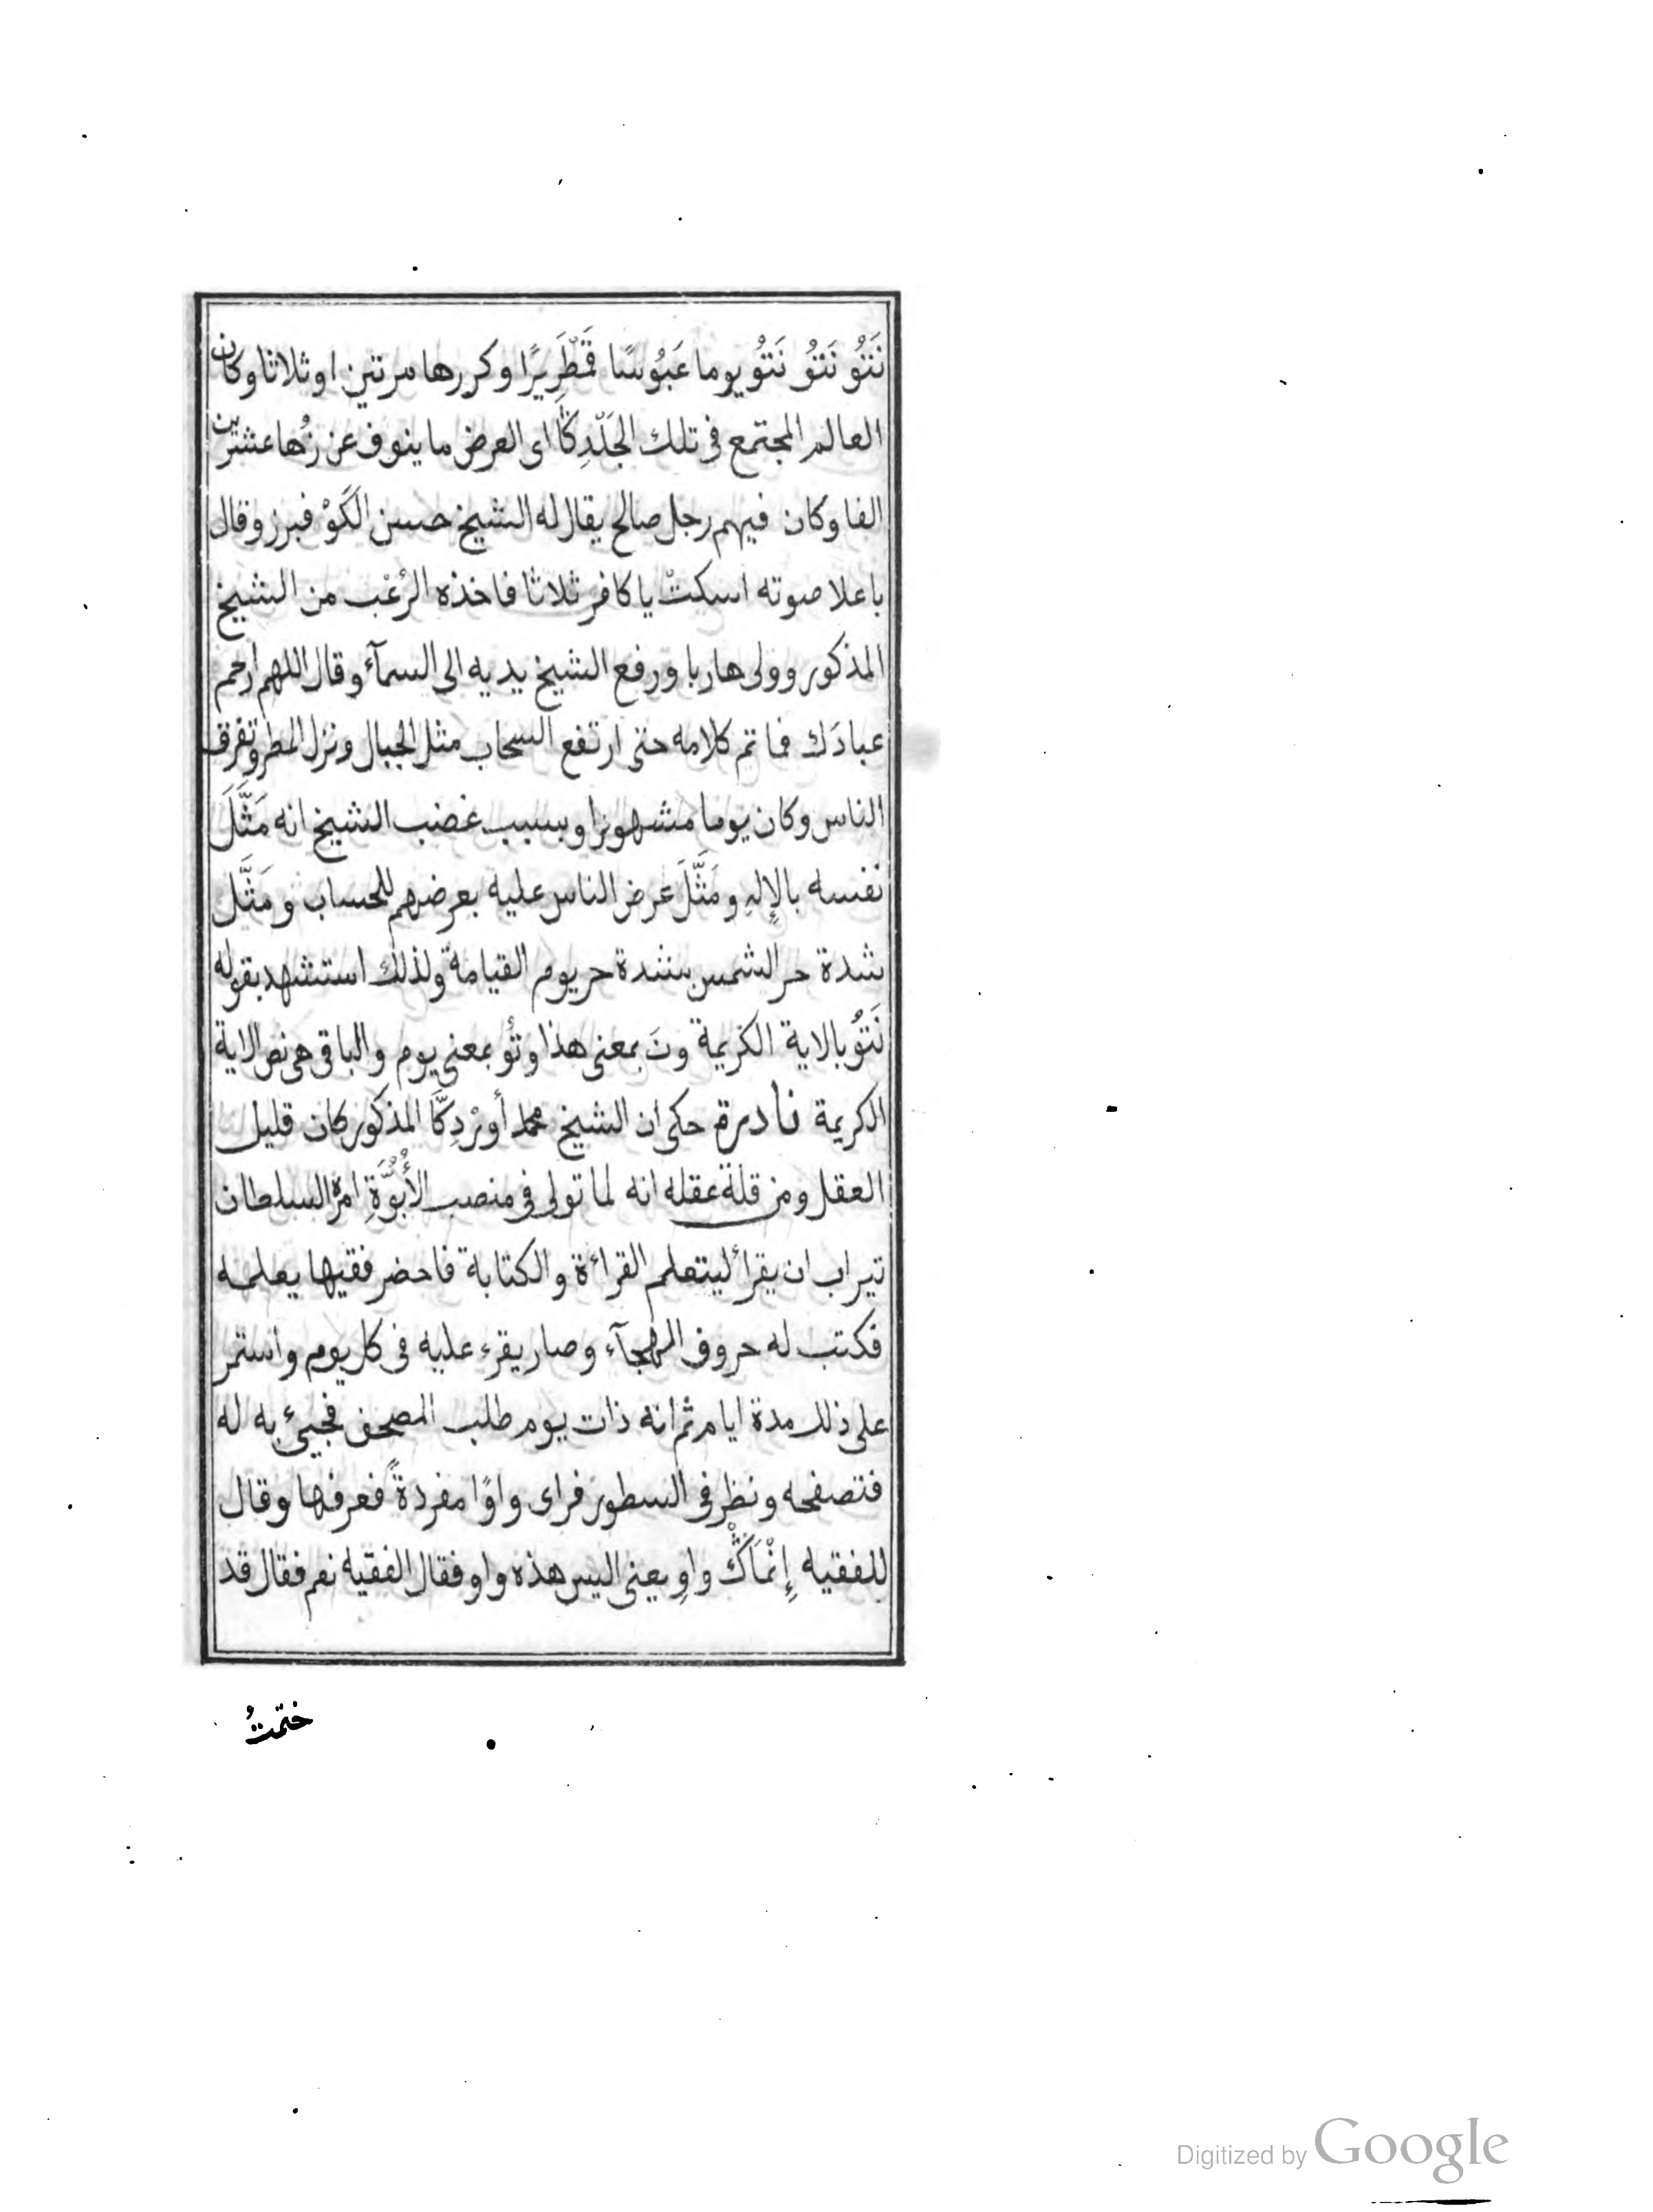 نَتُو نَتُو نَتُو يوما عَبُوسًا قَمْطَرِيرًا وكررها مرتين او ثلاثا وكان
العالم المجتمع فى تلك الجَلّدِكَا اى العرض ما ينوف عن زُها عشرين
الفا وكان فيهم رجل صالح يقال له الشيخ حسن الكَوْ فبرز وقال
باعلا صوته اسكتْ يا كافر ثلاثا فاخذه الرُعْب من الشيخ
المذكور وولى هاربا ورفع الشيخ يديه الى السمآء وقال اللهم ارحم
عبادَك فما تم كلامه حتى ارتفع السحاب مثل الجبال ونزل المطر وتفرق
الناس وكان يوما مشهورا وسبب غضب الشيخ انه مَثَّلَ
نفسه بالإلهِ ومَثَّلَ عرض الناس عليه بعرضهم للحساب ومَثَّل
شدة حر الشمس بشدة حر يوم القيامة ولذلك استشهد بقوله
نَتُو بالاية الكريمة ونَ بمعنى هذا وتُو بمعنى يوم والباقى هى نص الاية
الكريمة نادرة حكى ان الشيخ محمد أورْدِكَّا المذكور كان قليل
العقل ومن قلة عقله انه لما تولى فى منصب الأُبُوَّةِ امره السلطان
تيراب ان يقرأ ليتعلم القراءة والكتابة فاحضر فقيها يعلمه
فكتب له حروف الهجآء وصار يقرء عليه فى كل يوم واستمر
على ذلك مدة ايام ثم انه ذات يوم طلب المصحف فجيئ به له
فتصفحه ونظر فى السطور فراى واوًا مفردةً فعرفها وقال
للفقيه إِنْمَاكْ واوِ يعنى اليس هذه واو فقال الفقيه نعم فقال قد
ختمتُ
Digitized by Google